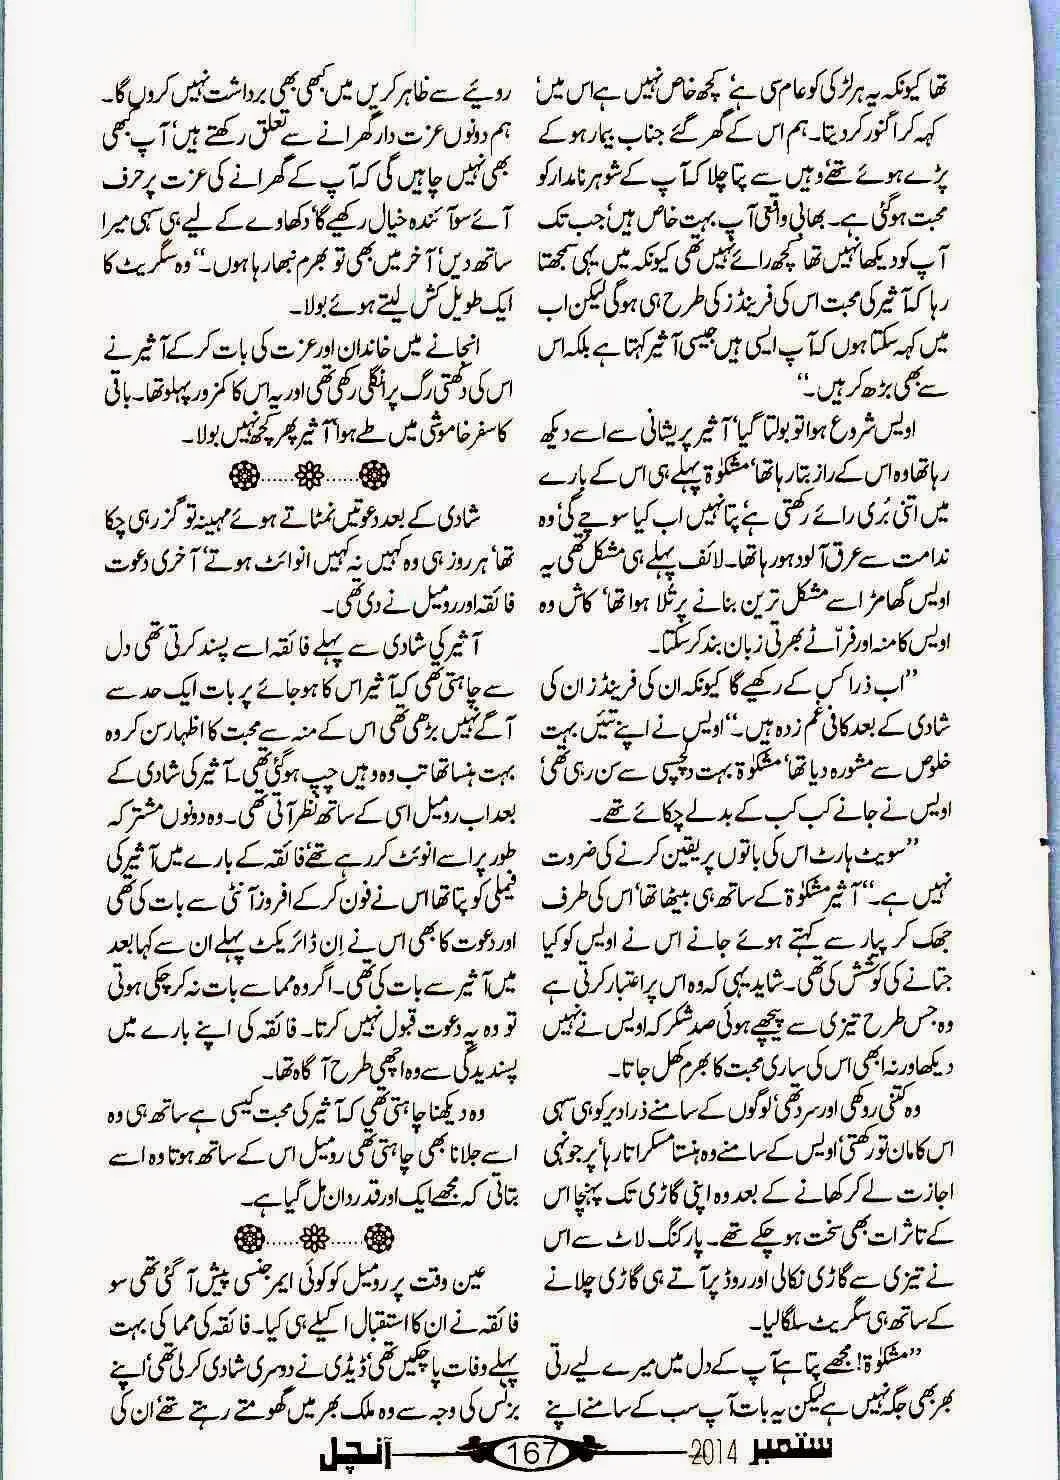 تھا کیونکہ یہ ہر لڑکی کو عام سی ہے‘ کچھ خاص نہیں ہے اس میں‘
کہہ کر اگنور کردیتا۔ ہم اس کے گھر گئے جناب بیمار ہو کے
پڑے ہوئے تھے‘ وہیں سے پتا چلا کہ آپ کے شوہر نامدار کو
محبت ہوگئی ہے۔ بھابی واقعی آپ بہت خاص ہیں‘ جب تک
آپ کو دیکھا نہیں تھا کچھ رائے نہیں تھی کیونکہ میں یہی سمجھتا
رہا کہ آثیر کی محبت اس کی فرینڈز کی طرح ہی ہوگی لیکن اب
میں کہہ سکتا ہوں کہ آپ ایسی ہیں جیسی آثیر کہتا ہے بلکہ اس
سے بھی بڑھ کر ہیں۔“
اویس شروع ہوا تو بولتا گیا‘ آثیر پریشانی سے اسے دیکھ
رہا تھا وہ اس کے راز بتا رہا تھا‘ مشکوٰۃ پہلے ہی اس کے بارے
میں اتنی بُری رائے رکھتی ہے‘ پتا نہیں اب کیا سوچے گی‘ وہ
ندامت سے عرق آلود ہورہا تھا۔ لائف پہلے ہی مشکل تھی یہ
اویس گھامڑ اسے مشکل ترین بنانے پر تُلا ہوا تھا‘ کاش وہ
اویس کا منہ اور فرّاٹے بھرتی زبان بند کرسکتا۔
”اب ذرا کس کے رکھیے گا کیونکہ ان کی فرینڈز ان کی
شادی کے بعد کافی غم زدہ ہیں۔“ اویس نے اپنے تئیں بہت
خلوص سے مشورہ دیا تھا‘ مشکوٰۃ بہت دلچسپی سے سن رہی تھی‘
اویس نے جانے کب کب کے بدلے چکائے تھے۔
”سویٹ ہارٹ اس کی باتوں پر یقین کرنے کی ضرورت
نہیں ہے۔“ آثیر مشکوٰۃ کے ساتھ ہی بیٹھا تھا‘ اس کی طرف
جھک کر پیار سے کہتے ہوئے جانے اس نے اویس کو کیا
جتانے کی کوشش کی تھی۔ شاید یہی کہ وہ اس پر اعتبار کرتی ہے
وہ جس طرح تیزی سے پیچھے ہوئی صد شکر کہ اویس نے نہیں
دیکھا ورنہ ابھی اس کی ساری محبت کا بھرم کھل جاتا۔
وہ کتنی روکھی اور سرد تھی‘ لوگوں کے سامنے ذرا دیر کو ہی سہی
اس کا مان تو رکھتی‘ اویس کے سامنے وہ ہنستا مسکراتا رہا‘ پر جونہی
اجازت لے کر کھانے کے بعد وہ اپنی گاڑی تک پہنچا اس
کے تاثرات بھی سخت ہوچکے تھے۔ پارکنگ لاٹ سے اس
نے تیزی سے گاڑی نکالی اور روڈ پر آتے ہی گاڑی چلانے
کے ساتھ ہی سگریٹ سلگالیا۔
”مشکوٰۃ! مجھے پتا ہے آپ کے دل میں میرے لیے رتی
بھر بھی جگہ نہیں ہے لیکن یہ بات آپ سب کے سامنے اپنے
رویئے سے ظاہر کریں میں کبھی بھی برداشت نہیں کروں گا۔
ہم دونوں عزت دار گھرانے سے تعلق رکھتے ہیں‘ آپ کبھی
بھی نہیں چاہیں گی کہ آپ کے گھرانے کی عزت پر حرف
آئے سو آئندہ خیال رکھیے گا‘ دکھاوے کے لیے ہی سہی میرا
ساتھ دیں‘ آخر میں بھی تو بھرم نبھا رہا ہوں۔“ وہ سگریٹ کا
ایک طویل کش لیتے ہوئے بولا۔
انجانے میں خاندان اور عزت کی بات کرکے آثیر نے
اس کی دکھتی رگ پر انگلی رکھی تھی اور یہ اس کا کمزور پہلو تھا۔ باقی
کا سفر خاموشی میں طے ہوا‘ آثیر پھر کچھ نہیں بولا۔
شادی کے بعد دعوتیں نمٹاتے ہوئے مہینہ تو گزر ہی چکا
تھا‘ ہر روز ہی وہ کہیں نہ کہیں انوائٹ ہوتے‘ آخری دعوت
فائقہ اور رومیل نے دی تھی۔
آثیر کی شادی سے پہلے فائقہ اسے پسند کرتی تھی دل
سے چاہتی تھی کہ آثیر اس کا ہوجائے پر بات ایک حد سے
آگے نہیں بڑھی تھی اس کے منہ سے محبت کا اظہار سن کر وہ
بہت ہنسا تھا تب وہ وہیں چپ ہوگئی تھی۔ آثیر کی شادی کے
بعد اب رومیل اسی کے ساتھ نظر آتی تھی۔ وہ دونوں مشترکہ
طور پر اسے انوئٹ کررہے تھے‘ فائقہ کے بارے میں آثیر کی
فیملی کو پتا تھا اس نے فون کرکے افروز آنٹی سے بات کی تھی
اور دعوت کا بھی اس نے اِن ڈائریکٹ پہلے ان سے کہا بعد
میں آثیر سے بات کی تھی۔ اگر وہ مما سے بات نہ کرچکی ہوتی
تو وہ یہ دعوت قبول نہیں کرتا۔ فائقہ کی اپنے بارے میں
پسندیدگی سے وہ اچھی طرح آگاہ تھا۔
وہ دیکھنا چاہتی تھی کہ آثیر کی محبت کیسی ہے ساتھ ہی وہ
اسے جلانا بھی چاہتی تھی رومیل اس کے ساتھ ہوتا وہ اسے
بتاتی کہ مجھے ایک اور قدر دان مل گیا ہے۔
عین وقت پر رومیل کو کوئی ایمرجنسی پیش آگئی تھی سو
فائقہ نے ان کا استقبال اکیلے ہی کیا۔ فائقہ کی مما کی بہت
پہلے وفات پاچکیں تھی‘ ڈیڈی نے دوسری شادی کرلی تھی‘ اپنے
بزنس کی وجہ سے وہ ملک بھر میں گھومتے رہتے تھے‘ ان کی
ستمبر 2014 167 آنچل